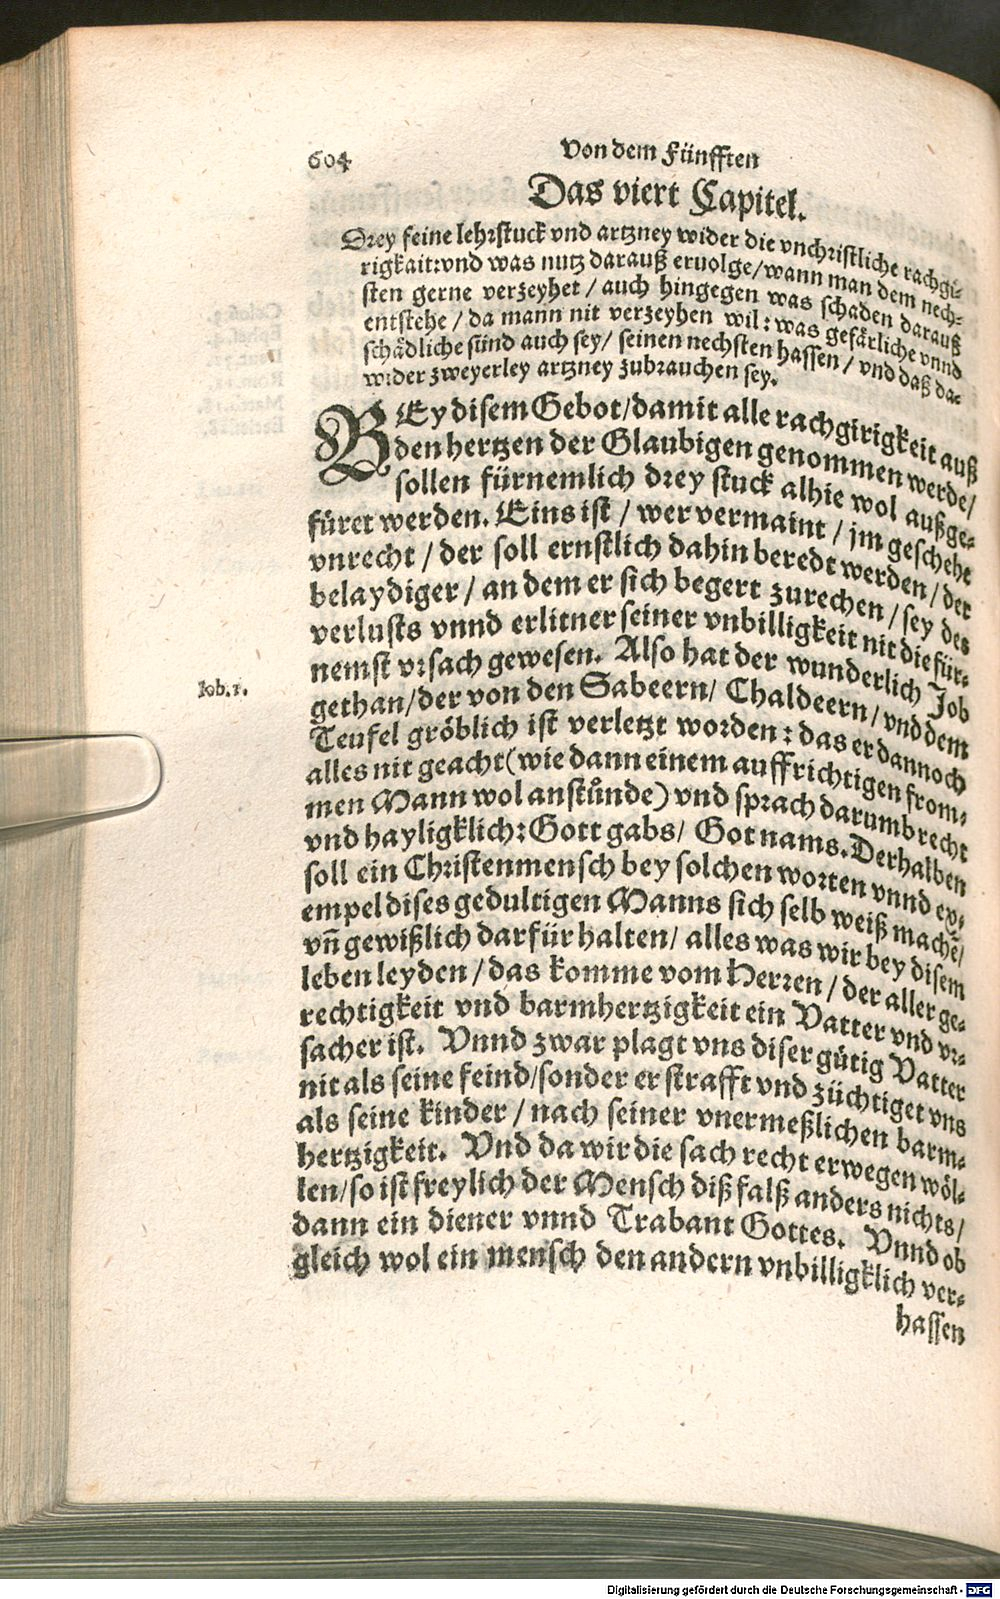 604 Von dem Fünfften
Das viert Capitel.
Drey feine lehrstuck vnd artzney wider die vnchristliche rachgi⸗
rigkait: vnd was nutz darauß eruolge/ wann man dem nech⸗
sten gerne verzeyhet / auch hingegen was schaden darauß
entstehe / da mann nit verzeyhen wil: was gefärliche vnnd
schädliche sünd auch sey/ seinen nechsten hassen / vnd daß da⸗
wider zweyerley artzney zubrauchen sey.
BEy disem Gebot/ damit alle rachgirigkeit auß
den hertzen der Glaubigen genommen werde/
sollen fürnemlich drey stuck alhie wol außge⸗
füret werden. Eins ist / wer vermaint / jm geschehe
vnrecht / der soll ernstlich dahin beredt werden / der
belaydiger / an dem er sich begert zurechen / sey des
verlusts vnnd erlitner seiner vnbilligkeit nit die für⸗
nemst vrsach gewesen. Also hat der wunderlich Job
Iob. 1.
gethan/ der von den Sabeern/ Chaldeern / vnd dem
Teufel gröblich ist verletzt worden: das er dannoch
alles nit geacht (wie dann einem auffrichtigen from⸗
men Mann wol anstůnde) vnd sprach darumb recht
vnd hayligklich: Gott gabs/ Got nams. Derhalben
soll ein Christenmensch bey solchen worten vnnd ex⸗
empel dises gedultigen Manns sich selb weiß machē/
vñ gewißlich darfür halten/ alles was wir bey disem
leben leyden / das komme vom Herren / der aller ge⸗
rechtigkeit vnd barmhertzigkeit ein Vatter vnd vr⸗
sacher ist. Vnnd zwar plagt vns diser gütig Vatter
nit als seine feind/ sonder er strafft vnd züchtiget vns
als seine kinder / nach seiner vnermeßlichen barm⸗
hertzigkeit. Vnd da wir die sach recht erwegen wöl⸗
len/ so ist freylich der Mensch diß falß anders nichts/
dann ein diener vnnd Trabant Gottes. Vnnd ob
gleich wol ein mensch den andern vnbilligklich ver⸗
hassen
Digitalisierung gefördert durch die Deutsche Forschungsgemeinschaft - DFG